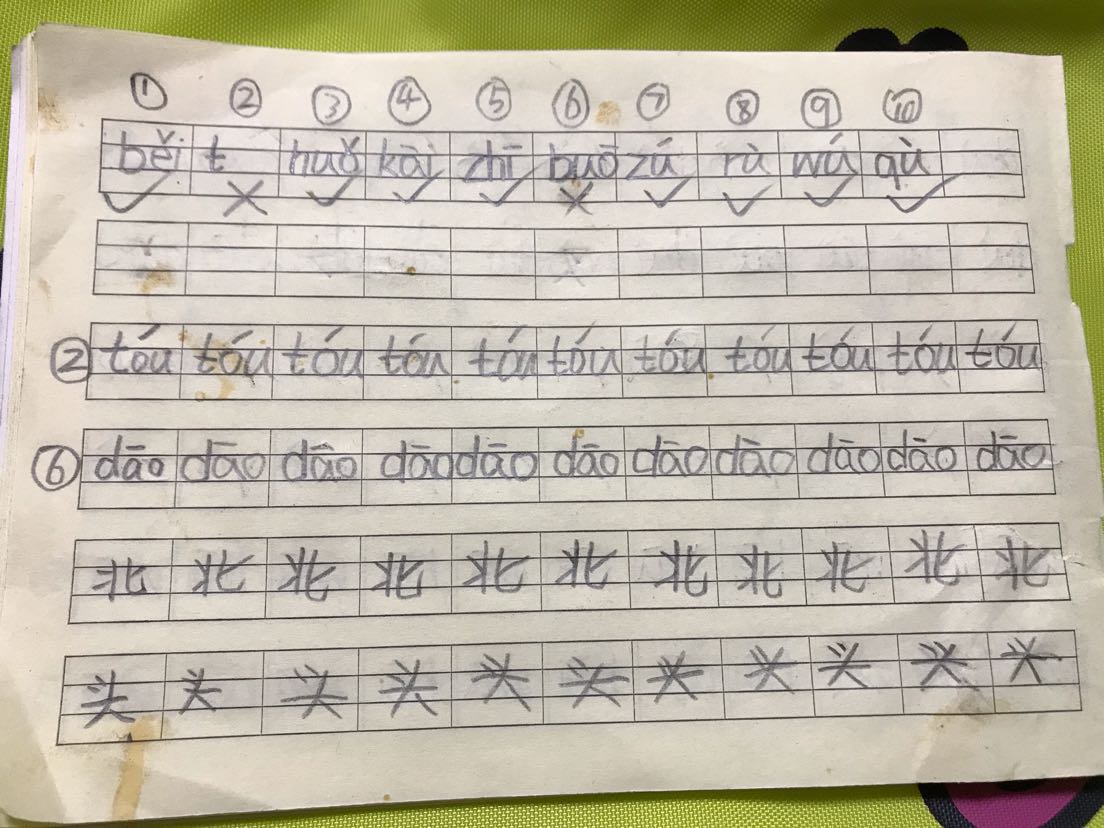 ① ② ③ ④ ⑤ ⑥ ⑦ ⑧ ⑨ ⑩
běi t huǒ kāi zhī buō zú rù wá qù
② tóu tóu tóu tóu tóu tóu tóu tóu tóu tóu tóu
⑥ dāo dāo dāo dāo dāo dāo dāo dāo dāo dāo dāo
北 北 北 北 北 北 北 北 北 北 北
头 头 头 头 头 头 头 头 头 头 头